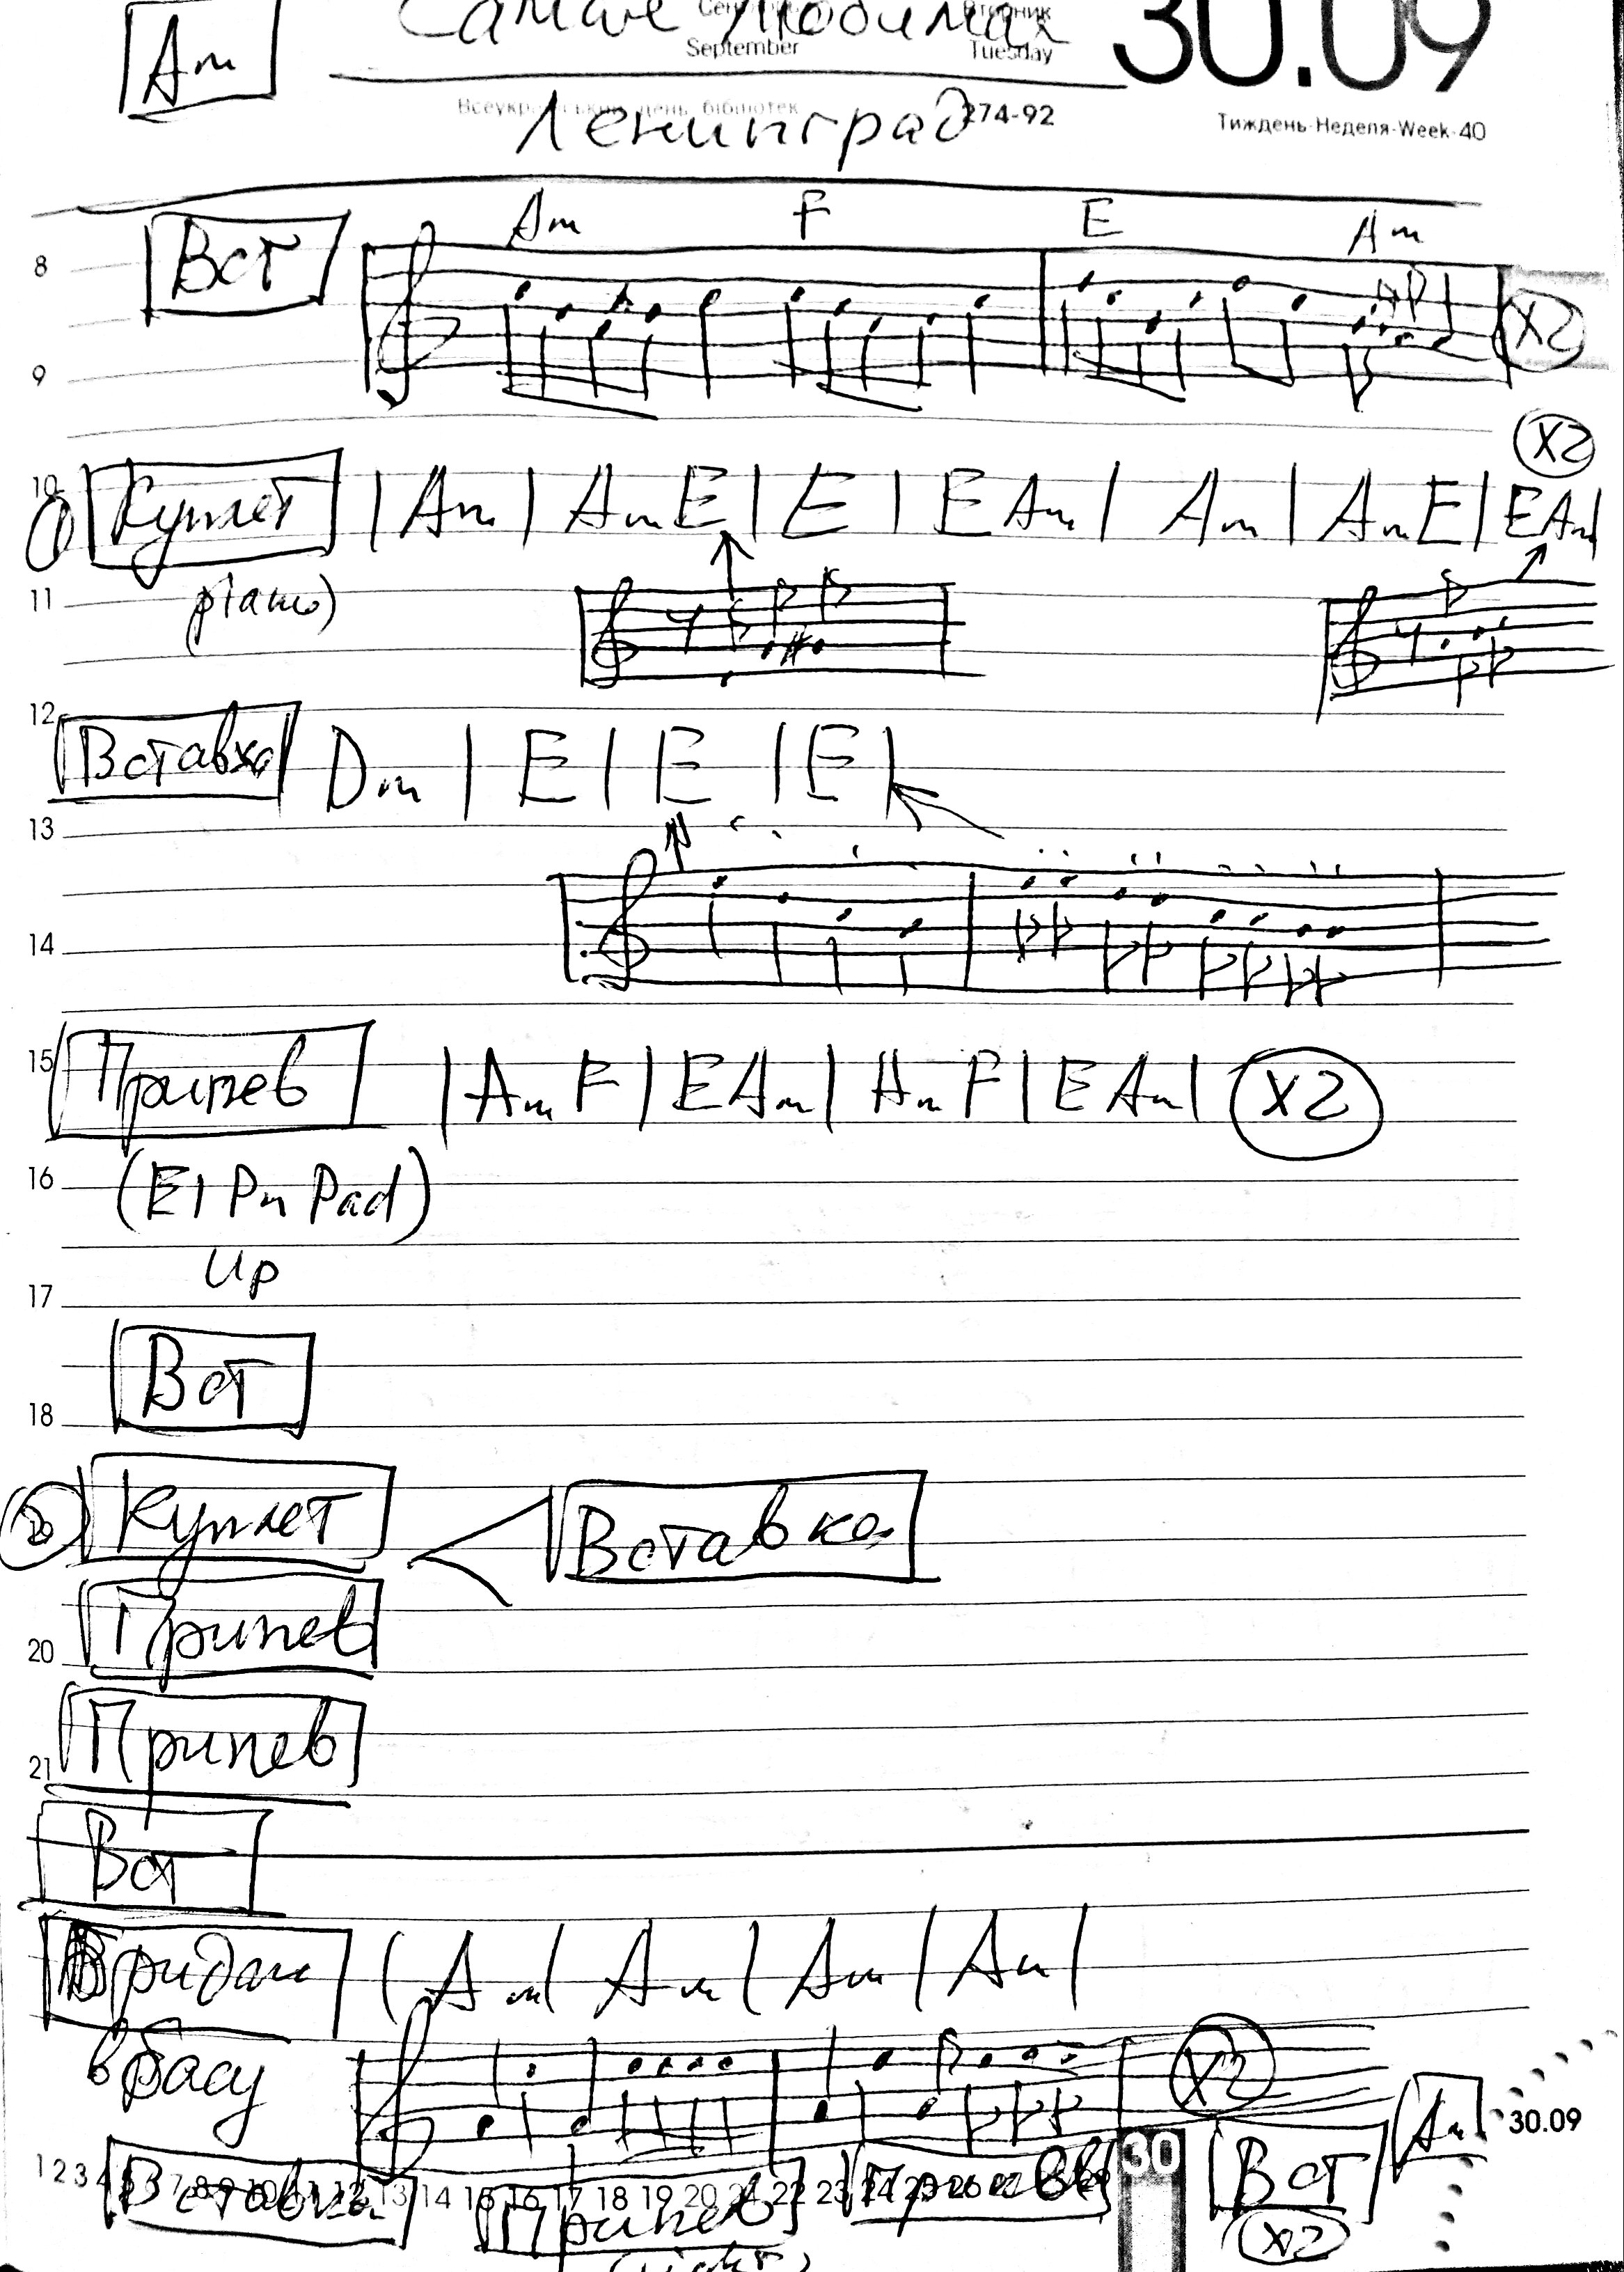 Am
Самая любимая
Вторник
September Tuesday
30.09
Всеукраїнський день бібліотек 274-92
Ленинград
Тиждень-Неделя-Week-40
Am F E Am
8 Вст X2
9
X2
10 1 Куплет | Am | Am E | E | E Am | Am | Am E | E Am |
11 piano)
12
Вставка Dm | E | E | E |
13
14
15 Припев | Am F | E Am | Am F | E Am | X2
16 (El Pn Pad)
Up
17
Вст
18
2 Куплет < Вставка
Припев
20
Припев
21
Вст
Бридж ( Am | Am | Am | Am |
в басу X2
Am 30.09
1 2 3 4 5 6 7 8 9 10 11 12 13 14 15 16 17 18 19 20 21 22 23 24 25 26 27 28 29 30
Вставка Припев Припев Вст
X2